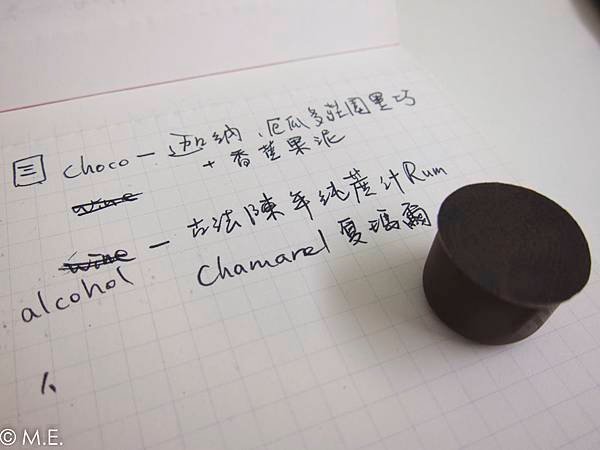 三 choco — 迦納、厄瓜多莊園黑巧
+ 香蕉果泥
wine
wine — 古法陳年純蔗汁Rum
alcohol Chamarel 夏瑪爾
1、
© M.E.